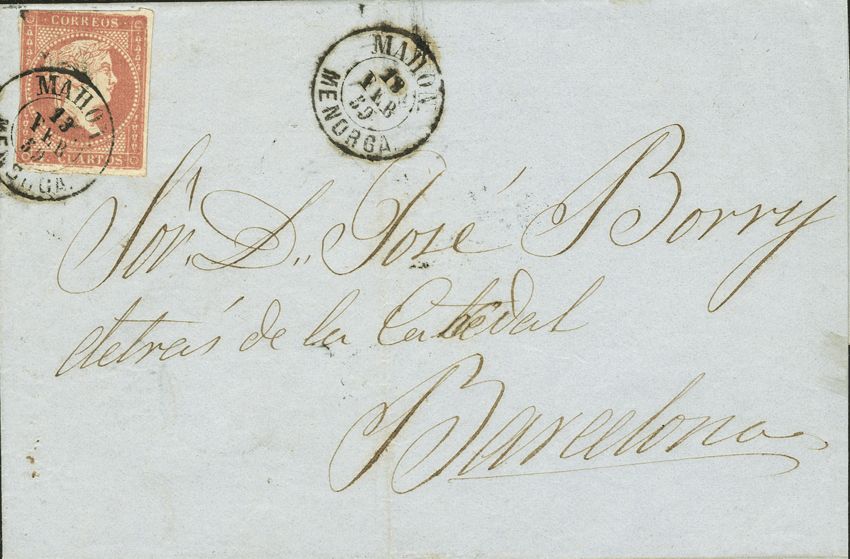 CORREOS
MAHON
13
FEB
59
MENORCA.
CUARTOS
MAHON
13
FEB
59
MENORCA.
Sor. D. José Borry
detrás de la Catedral
Barcelona